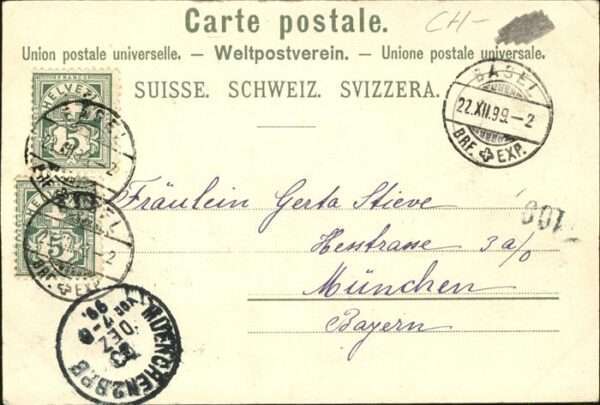 Carte postale.
CH-
Union postale universelle. — Weltpostverein. — Unione postale universale.
SUISSE. SCHWEIZ. SVIZZERA.
BASEL
22.XII.99.–2
BRF. EXP.
FRANCO
HELVETIA
5
BASEL
2
BRF. EXP.
5
BASEL
2
BRF. EXP.
Fräulein Gerta Stieve
Hesstrasse 3 a/0
München
Bayern
100
MUENCHEN 2.B.P.B
23
DEZ
7-8
VOR
99.